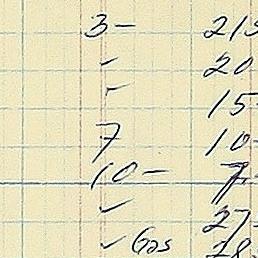 3- 215
" 20
" 15-
7 10-
10- 7.
" 27-
" Gas 28